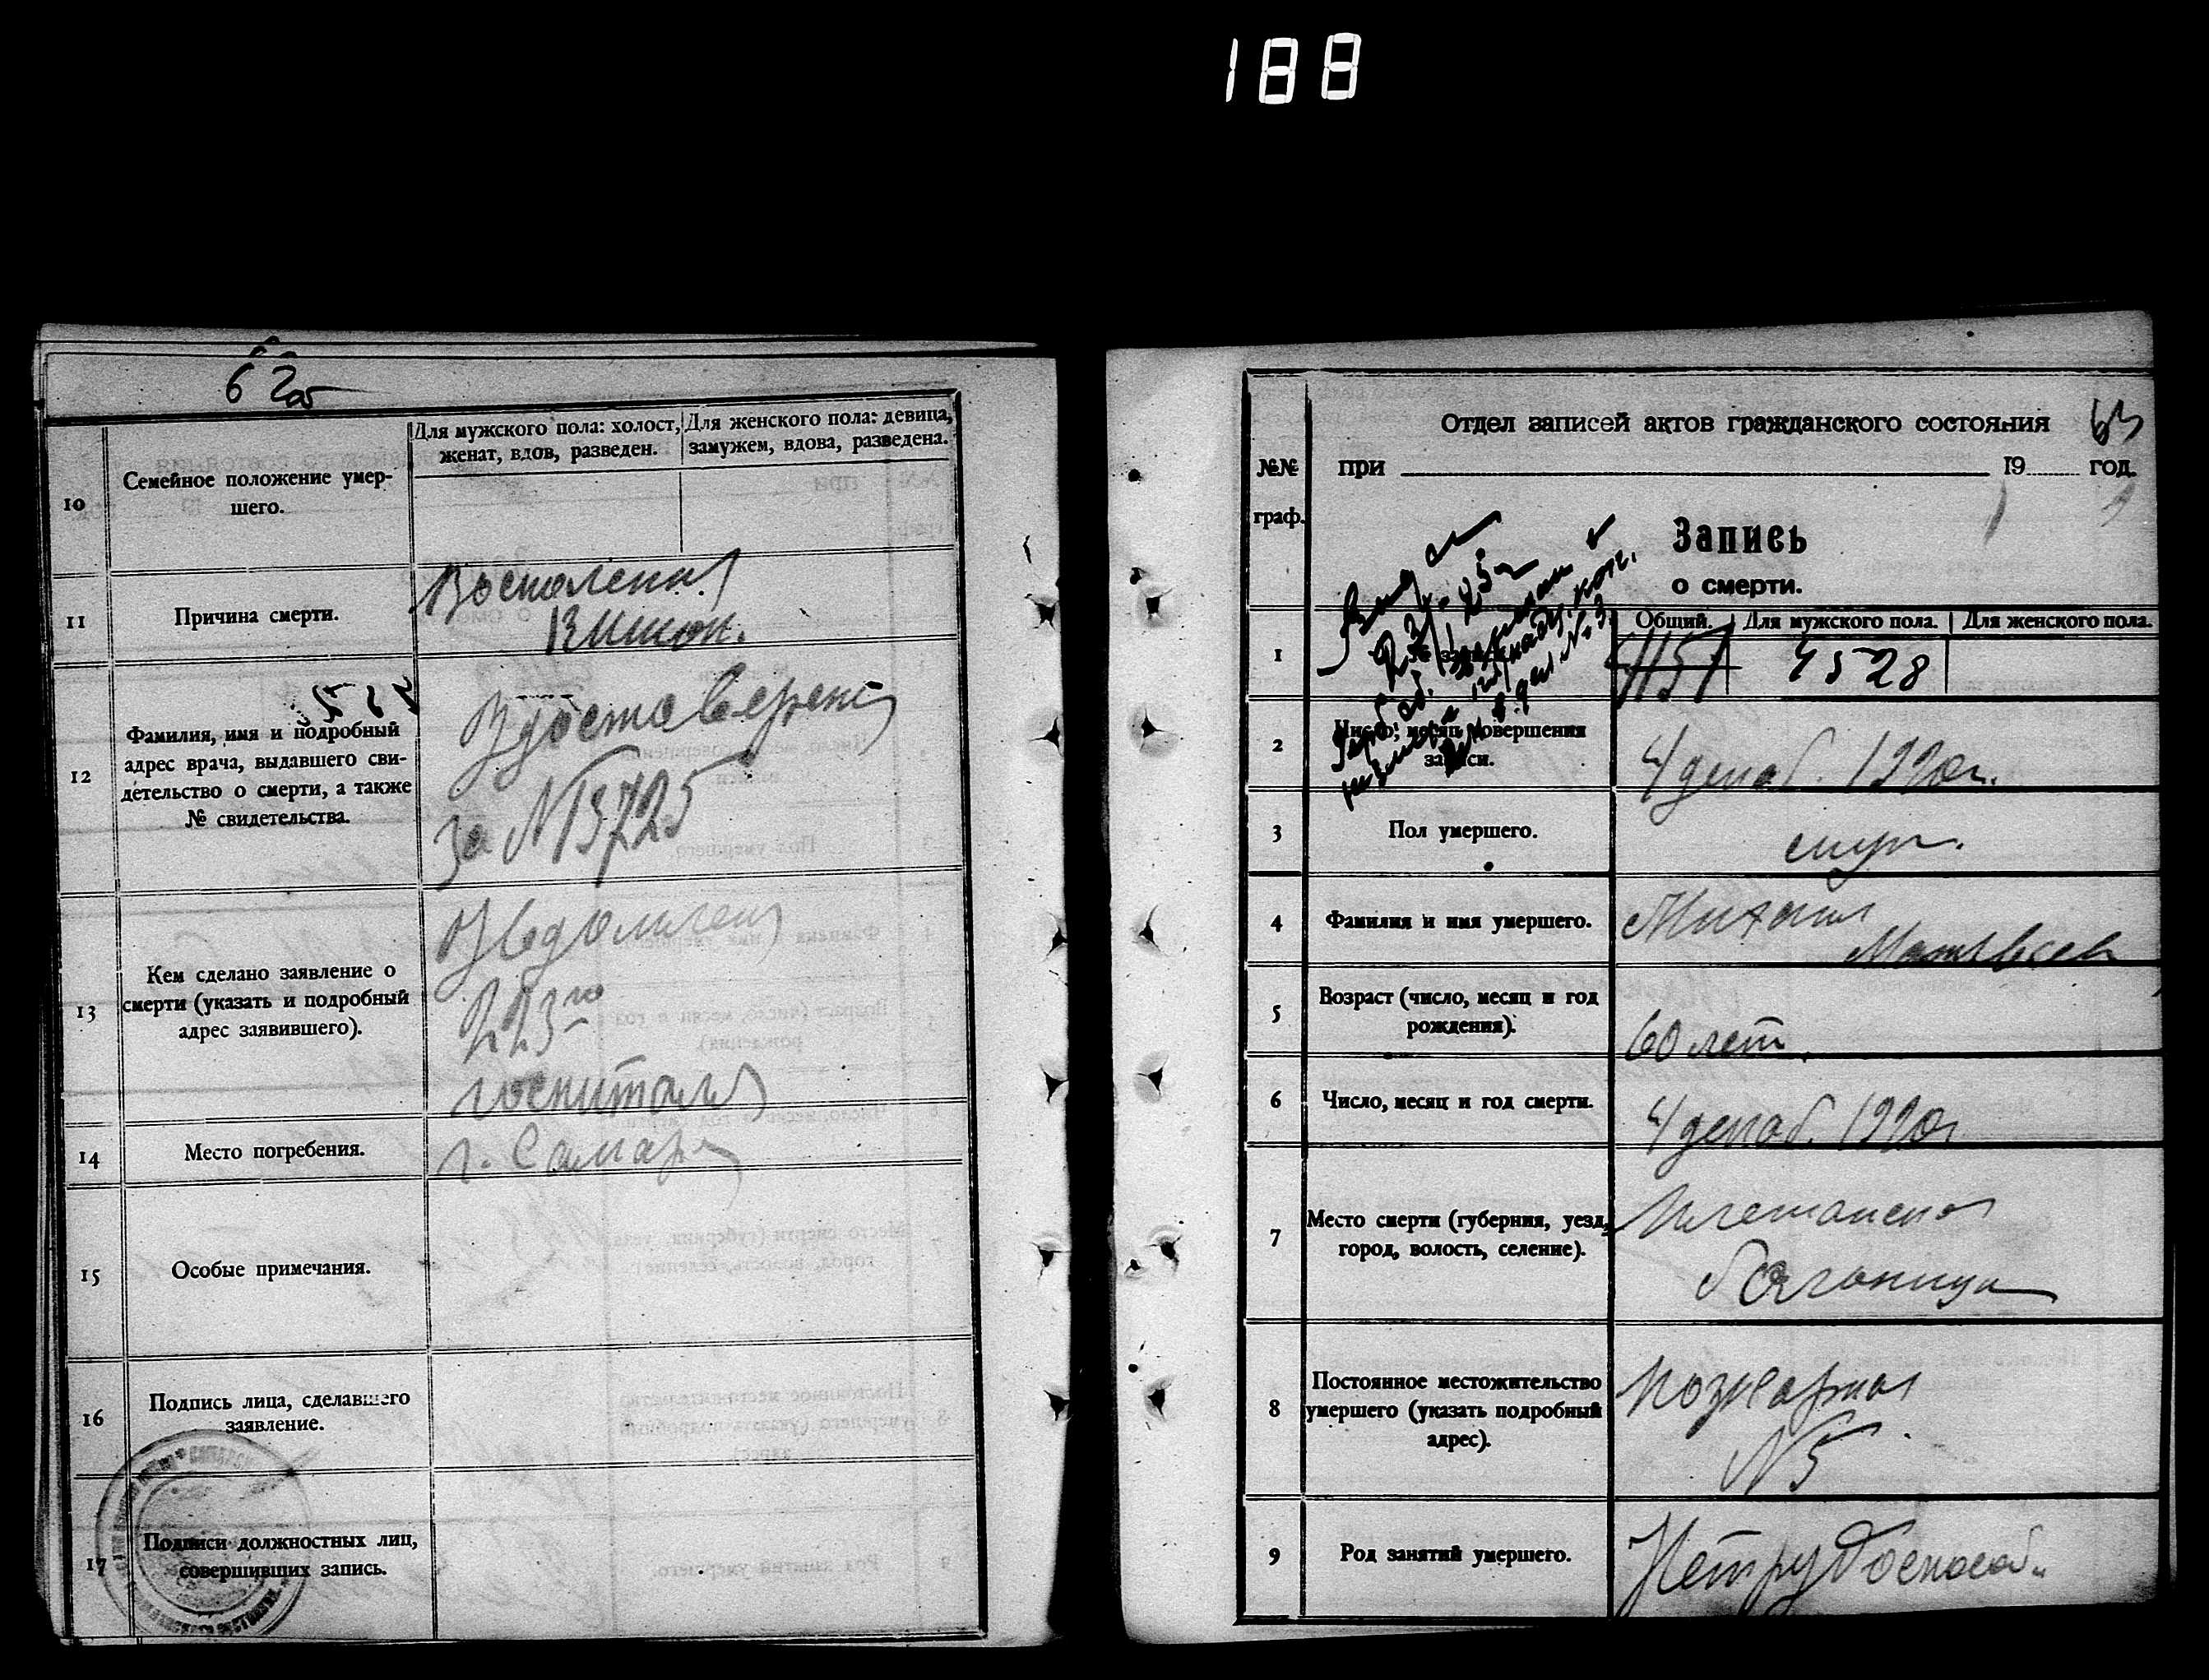 188
62об
10
Семейное положение умер-
шего.
Для мужского пола: холост,
женат, вдов, разведен.
Для женского пола: девица,
замужем, вдова, разведена.
11
Причина смерти.
Воспаления
кишок.
12
Фамилия, имя и подробный
адрес врача, выдавшего сви-
детельство о смерти, а также
№ свидетельства.
Удостоверения
за N 13725
13
Кем сделано заявление о
смерти (указать и подробный
адрес заявившего).
Уведомления
го
госпиталя
14
Место погребения.
г. Самара
15
Особые примечания.
16
Подпись лица, сделавшего
заявление.
17
Подписи должностных лиц,
совершивших запись.
63
№№
граф.
Отдел записей актов гражданского состояния
при 19 год.
Запись
о смерти.
1
Общий. Для мужского пола. Для женского пола.
4528
2
Число, месяц совершения
записи.
4 декаб. 1920 г.
3
Пол умершего.
муж.
4
Фамилия и имя умершего.
Михаил
Матвеев
5
Возраст (число, месяц и год
рождения).
60 лет
6
Число, месяц и год смерти.
4 декаб. 1920 г
7
Место смерти (губерния, уезд,
город, волость, селение).
больница
8
Постоянное местожительство
умершего (указать подробный
адрес).
Пожарная
N 5
9
Род занятий умершего.
Нетрудоспособ.